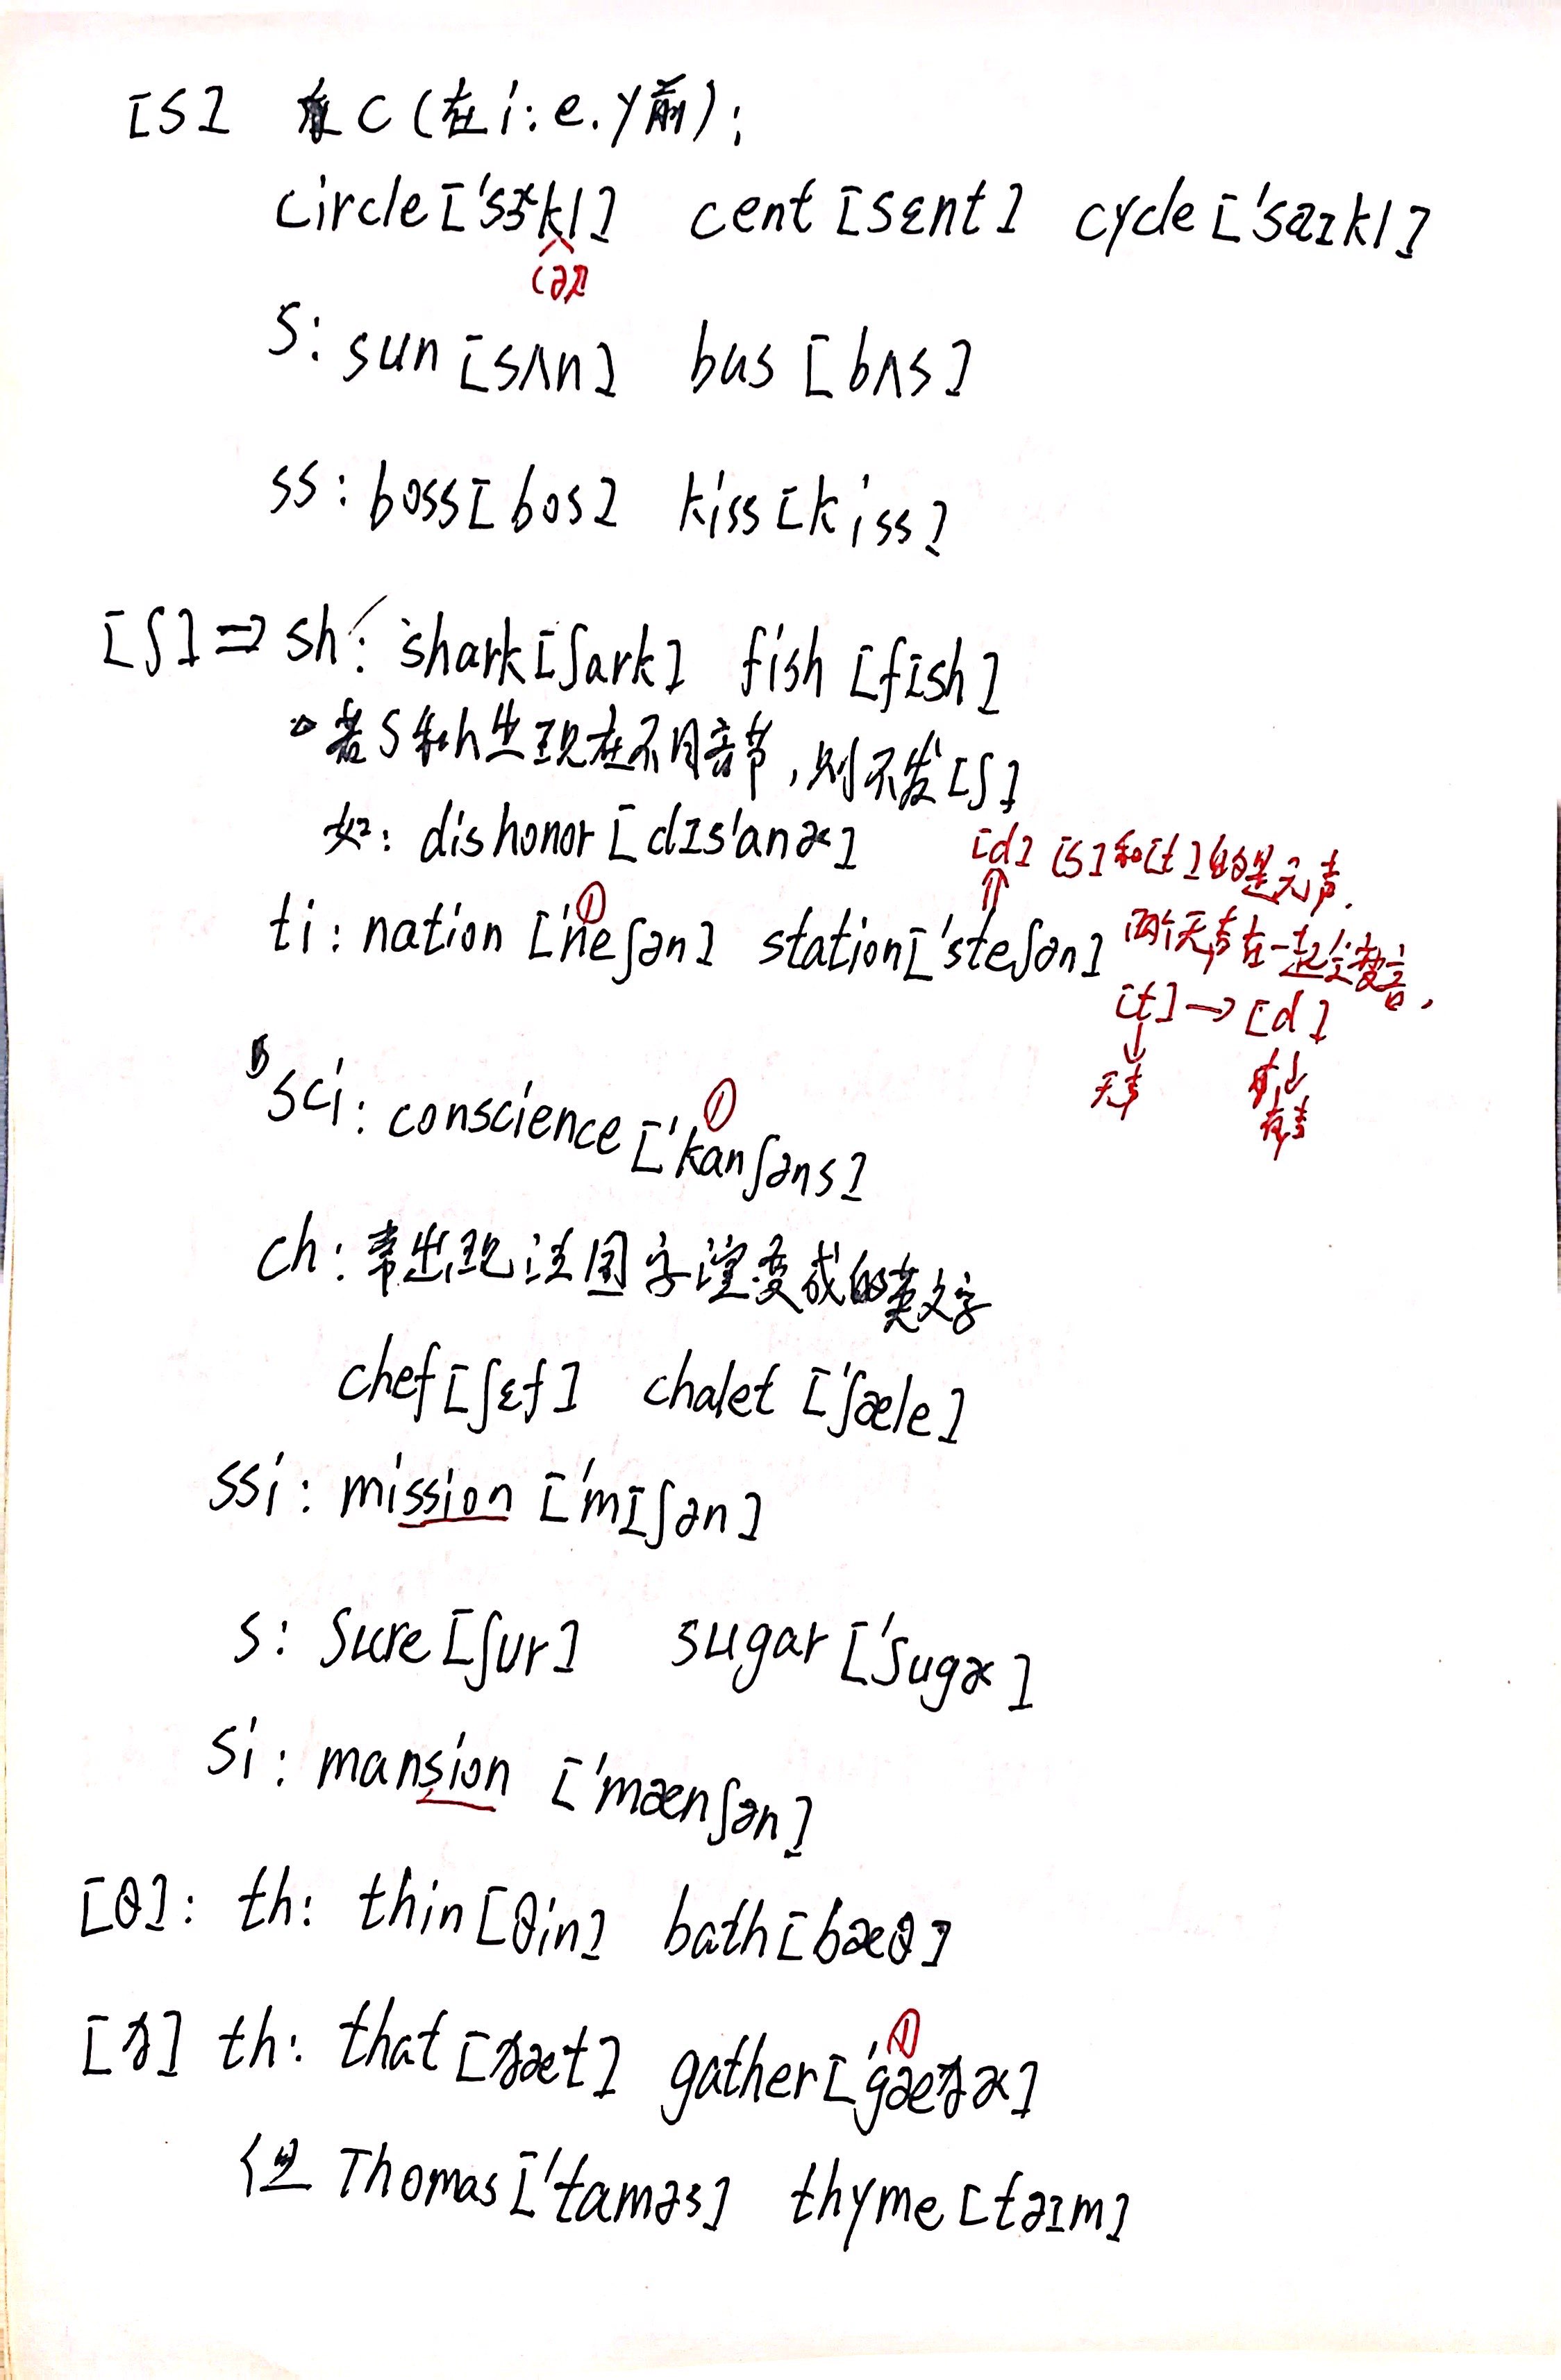 [s] 在c(在i:e.y前):
circle['sɝkl] cent[sɛnt] cycle['saɪkl]
(ə)
s: sun[sʌn] bus[bʌs]
ss: boss[bos] kiss[kiss]
[ʃ]⇒sh: shark[ʃark] fish[fɪsh]
若s和h出现在不同音节,则不发[ʃ]
如: dishonor[dɪs'anɚ]
[d] [s]和[t]的是无声.
ti: nation['neʃən] station['steʃən] 两个无声在一起会变音,
①
[t]→[d]
无声 有声
sci: conscience['kanʃəns]
①
ch: 常出现法国字演变成的英文字
chef[ʃɛf] chalet['ʃæle]
ssi: mission['mɪʃən]
s: sure[ʃur] sugar['ʃugɚ]
si: mansion['mænʃən]
[θ]: th: thin[θin] bath[bæθ]
[ð] th: that[ðæt] gather['gæðɚ]
①
但 Thomas['taməs] thyme[taɪm]